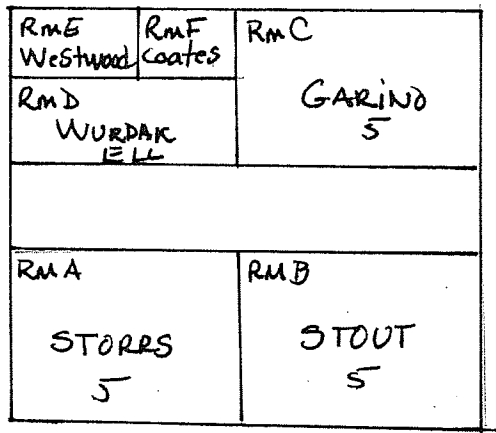 RmE
Westwood
RmF
Coates
RmC
GARINO
5
RmD
WURDAK
ELL
RMA
STORRS
5
RMB
STOUT
5